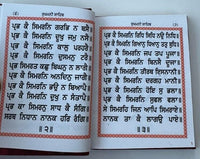 ਸੁਖਮਨੀ ਸਾਹਿਬ
ਪ੍ਰਭ ਕੈ ਸਿਮਰਨਿ ਗਰਭਿ ਨ ਬਸੈ
ਪ੍ਰਭ ਕੈ ਸਿਮਰਨਿ ਦੂਖੁ ਜਮੁ ਨਸੈ
ਪ੍ਰਭ ਕੈ ਸਿਮਰਨਿ ਕਾਲੁ ਪਰਹਰੈ
ਪ੍ਰਭ ਕੈ ਸਿਮਰਨਿ ਦੁਸਮਨੁ ਟਰੈ
ਪ੍ਰਭ ਸਿਮਰਤ ਕਛੁ ਬਿਘਨੁ ਨ ਲਾਗੈ
ਪ੍ਰਭ ਕੈ ਸਿਮਰਨਿ ਅਨਦਿਨੁ ਜਾਗੈ
ਪ੍ਰਭ ਕੈ ਸਿਮਰਨਿ ਭਉ ਨ ਬਿਆਪੈ
ਪ੍ਰਭ ਕੈ ਸਿਮਰਨਿ ਦੁਖੁ ਨ ਸੰਤਾਪੈ
ਪ੍ਰਭ ਕਾ ਸਿਮਰਨੁ ਸਾਧ ਕੈ ਸੰਗਿ
ਸਰਬ ਨਿਧਾਨ ਨਾਨਕ ਹਰਿ ਰੰਗਿ
॥੨॥
ਸੁਖਮਨੀ ਸਾਹਿਬ
ਪ੍ਰਭ ਕੈ ਸਿਮਰਨਿ ਰਿਧਿ ਸਿਧਿ ਨਉ ਨਿਧਿ
ਪ੍ਰਭ ਕੈ ਸਿਮਰਨਿ ਗਿਆਨੁ ਧਿਆਨੁ ਤਤੁ ਬੁਧਿ
ਪ੍ਰਭ ਕੈ ਸਿਮਰਨਿ ਜਪ ਤਪ ਪੂਜਾ
ਪ੍ਰਭ ਕੈ ਸਿਮਰਨਿ ਬਿਨਸੈ ਦੂਜਾ
ਪ੍ਰਭ ਕੈ ਸਿਮਰਨਿ ਤੀਰਥ ਇਸਨਾਨੀ
ਪ੍ਰਭ ਕੈ ਸਿਮਰਨਿ ਦਰਗਹ ਮਾਨੀ
ਪ੍ਰਭ ਕੈ ਸਿਮਰਨਿ ਹੋਇ ਸੁ ਭਲਾ
ਪ੍ਰਭ ਕੈ ਸਿਮਰਨਿ ਸੁਫਲ ਫਲਾ
ਸੇ ਸਿਮਰਹਿ ਜਿਨ ਆਪਿ ਸਿਮਰਾਏ
ਨਾਨਕ ਤਾ ਕੈ ਲਾਗਉ ਪਾਏ
॥੩॥